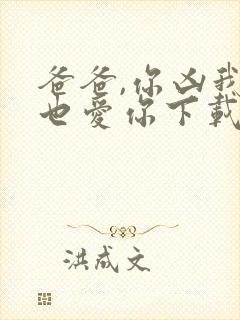 爸爸,你凶我
也爱你下載
洪成文